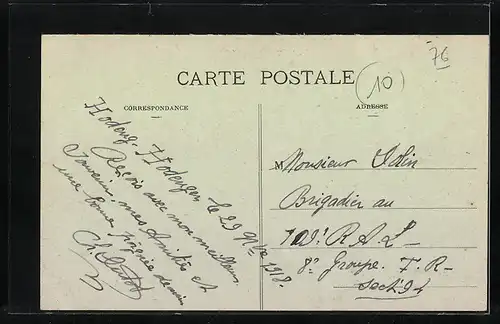 76
10
CARTE POSTALE
CORRESPONDANCE
ADRESSE
Hodeng-Hodenger le 29 Nbre 1918
Reçois avec mon meilleur
souvenir mes amitiés et
une bonne poignée de main
Ch.
Monsieur
Brigadier au
R.A.L
8e Groupe. T.R-
Sect.